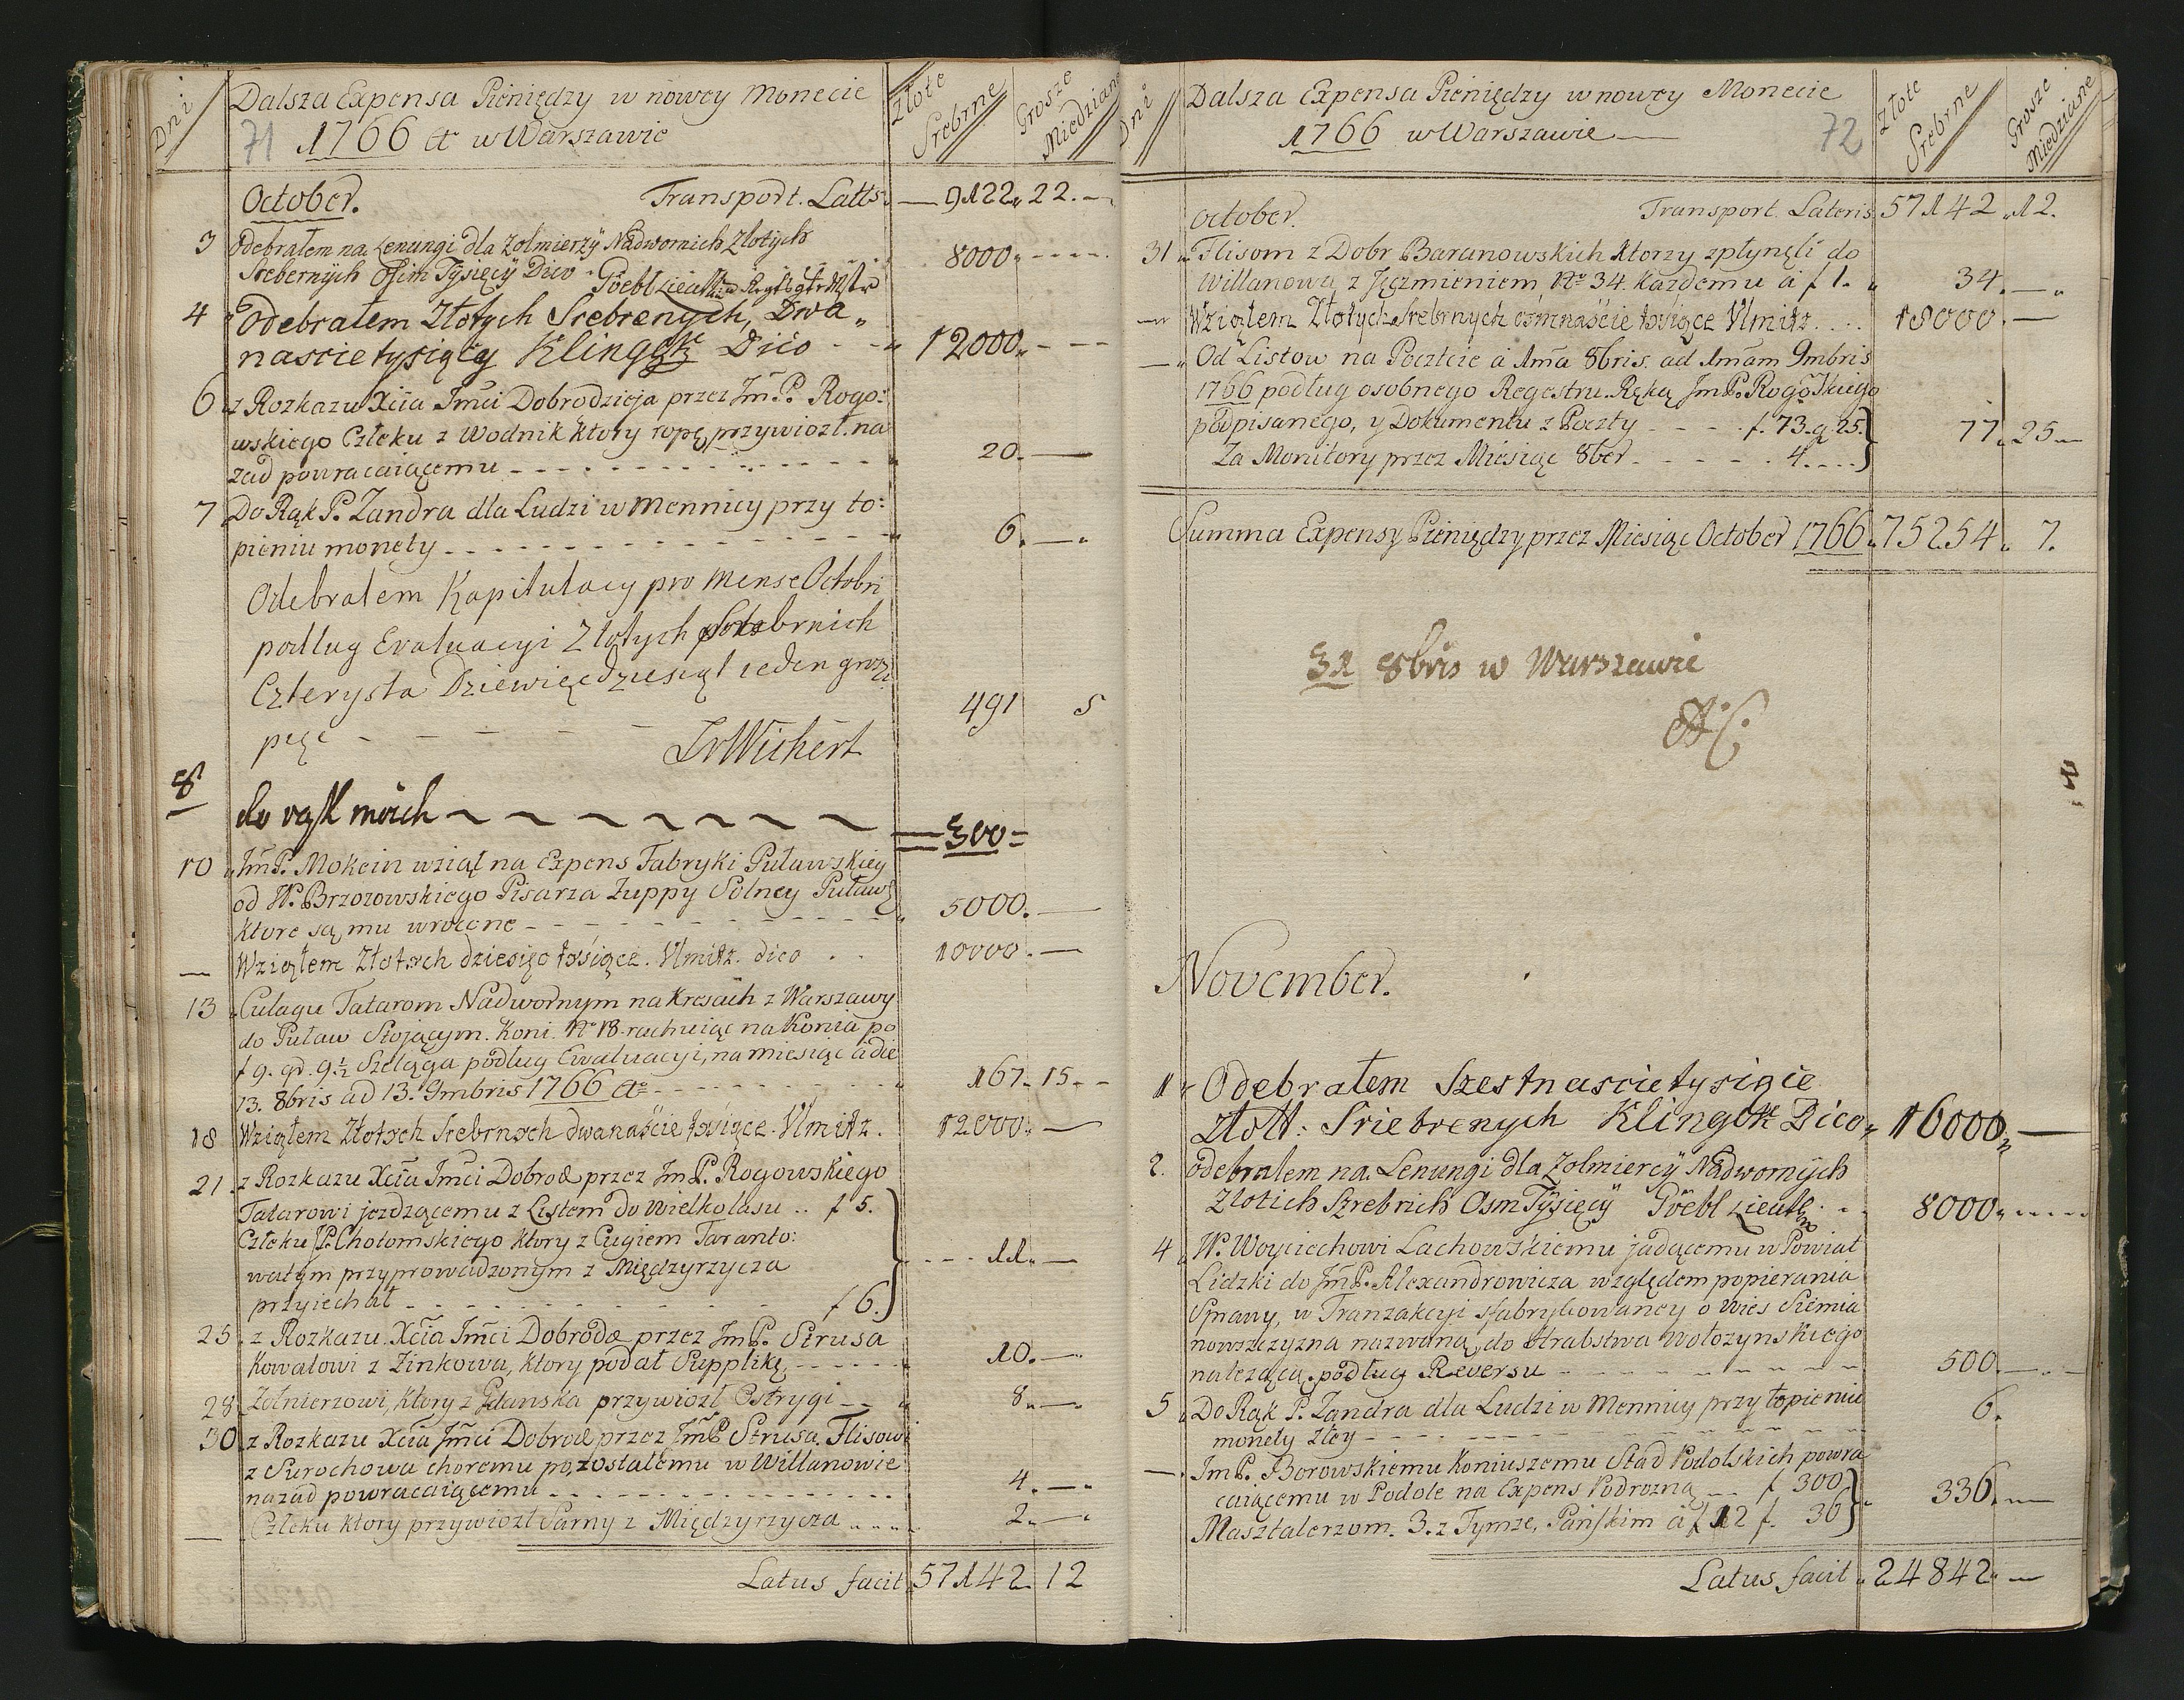 Dni
Dalsza Expensa Pieniędzy w nowey Monecie
71 1766 w Warszawie
Złote Srebrne
Grosze Miedziane
October. Transport. Latts. 9122. 22.
3 Odebrałem na Lenungi dla Zolmierzÿ Nadwornich Złotÿch 8000
Srebernÿch Osim Tÿsięcÿ Dico Goebl Lieutt
4 Odebrałem Złotych Srebrenych, Dwa
nascie tysięcy Klingg Dico 12000
6 z Rozkazu Xcia Jmci Dobrodzieja przez Jm P. Rogo:
wskiego Człeku z Wodnik ktory ropę przywiozł. na
zad powracaiącemu 20.
7 Do Rąk P. Zandra dla Ludzi w mennicy przy to:
pieniu monety 6.
Odebrałem Kapitulacy pro Mense Octobri
podług Evaluacyi Złotych Srebrnich
Czterysta Dziewięcdziesiąt ieden grosz
pęc 491 5
Wichert
8 do rąk moich 300
10 Jm P. Mokein wziął na Expens Fabryki Puławskiey
od W. Brzozowskiego Pisarza Zuppy Solney Puław
ktore są mu wrocone 5000.
Wziąłem Złotych dziesięc tysięce. Ulmitz. dico 10000.
13 Culagu Tatarom Nadwornym na Kresach z Warszawy
do Puław Stojącym. Koni. No 18. rachuiąc na Konia po
f 9. gr. 9 1/2 Szeląga podług Ewaluacyi, na miesiąc a die
13. 8bris ad 13. 9mbris 1766 167. 15.
18 Wziąłem Złotych Srebrnych dwanaście tysięce. Ulmitz. 12000.
21. z Rozkazu Xcia Jmci Dobrod przez Jm P. Rogowskiego
Tatarowi jezdzącemu z Listem do Wielkolasu .. f 5.
Człeku JP. Chotomskiego ktory z Cugiem Taranto:
watym przyprowadzonym z Międzyrzycza 11.
przyiechał f 6.
25. z Rozkazu Xcia Jmci Dobrod przez Jm P. Strusa
Kowalowi z Zinkowa, ktory podał Supplikę 10.
28 Zołnierzowi, ktory z Gdanska przywiozł Ostrygi 8.
30. z Rozkazu Xcia Jmci Dobrod przez Jm P Strusa. Flisowi
z Surochowa choremu pozostałemu w Willanowie
nazad powracaiącemu 4.
Człeku ktory przywiozł Sarny z Międzyrzycza 2.
Latus facit 57142. 12
Dni
Dalsza Expensa Pieniędzy w nowey Monecie
1766 w Warszawie 72
Złote Srebrne
Grosze Miedziane
october. Transport. Lateris 57142. 12.
31 Flisom z Dobr Baranowskich ktorzy zpłynęli do
Willanowa z Jęczmieniem No 34. każdemu á f 1. 34.
Wziąłem Złotych Srebrnych osmnaście tysiące Ulmitz 18000.
Od Listow na Poczcie á 1ma 8bris. ad 1mam 9mbris
1766 podług osobnego Regestru. Ręką Jm P. Rogowskiego
podpisanego, y Dokumentu z Poczty f. 73. g. 25. 77. 25
Za Monitory przez Miesiąc 8ber 4.
Summa Expensy Pieniędzy przez Miesiąc October 1766. 75254. 7.
31 8bris w Warszawie
November.
1 Odebrałem Szestnascie tysięcie
złott: Sriebrenych Klingg Dico 16000
2. odebralem na Lenungi dla Zolmiercÿ Nadwornÿch
Zlotich Srebrich Osm Tÿsięcÿ Göebl Lieutt 8000
4 W. Woyciechowi Lachowskiemu jadącemu w Powiat
Lidzki do Jm P. Alexandrowicza względem popierania
Sprawy, w Tranzakcyi sfabrykowaney o Wies Siemia
nowszczyzna nazwaną, do Hrabstwa Wołozynskiego
należącą, podług Reversu 500.
5 Do Rąk P. Zandra dla Ludzi w Mennicy przy topieniu 6.
monety złey
Jm P. Borowskiemu Koniuszemu Stad Podolskich powra
caiącemu w Podole na Expens Podrozną f 300 336.
Masztalerzom. 3. z Tymze, Pańskim á f 12 f. 36
Latus facit 24842